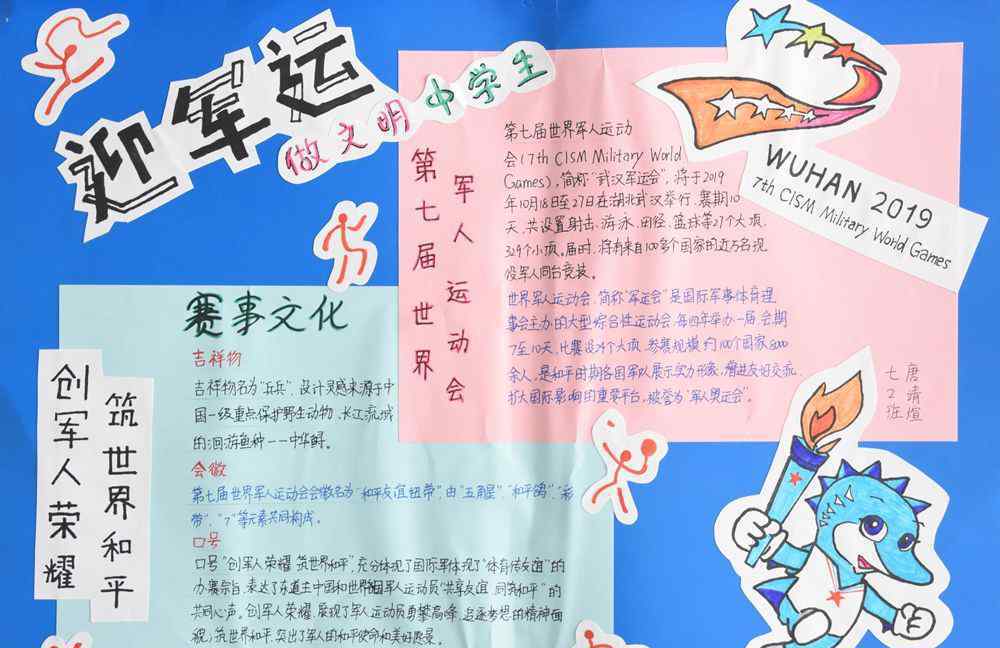 迎军运
做文明中学生
WUHAN 2019
7th CISM Military World Games
第七届世界
军人运动会
第七届世界军人运动
会(7th CISM Military World
Games),简称“武汉军运会”,将于2019
年10月18日至27日在湖北武汉举行,赛期10
天,共设置射击、游泳、田径、篮球等27个大项、
329个小项。届时,将有来自100多个国家的近万名现
役军人同台竞技。
世界军人运动会,简称“军运会”是国际军事体育理
事会主办的大型综合性运动会,每四年举办一届,会期
7至10天,比赛设
大项,参赛规模约100个国家8000
余人,是和平时期各国军队展示实力形象、增进友好交流、
扩大国际影响的重要平台,被誉为“军人奥运会”。
七2班
唐靖煊
赛事文化
吉祥物
吉祥物名为“兵兵”,设计灵感来源于中
国一级重点保护野生动物、长江流域
的洄游鱼种——中华鲟。
会徽
第七届世界军人运动会会徽名为“和平友谊纽带”,由“五角星”、“和平鸽”、“彩
带”、“7”等元素共同构成。
口号
口号“创军人荣耀,筑世界和平”,充分体现了国际军体现了“体育传友谊”的
办赛宗旨,表达了东道主中国和世界
军人运动员“共享友谊,同筑和平”的
共同心声。创军人荣耀,展现了军人运动员勇攀高峰、追逐梦想的精神面
貌;筑世界和平,突出了军人的和平使命和美好愿景。
创军人荣耀
筑世界和平